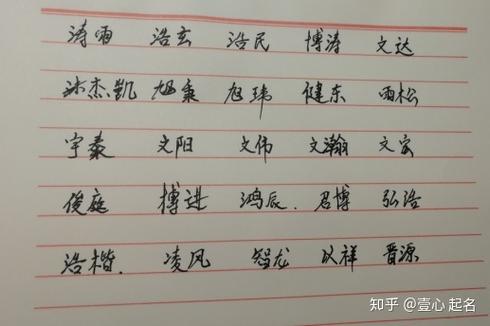 涛雨 浩玄 浩民 博涛 文达
冰杰凯 旭秉 旭玮 健东 雨松
宇泰 文阳 文伟 文瀚 文宏
俊庭 搏进 鸿辰. 君博 弘浩
浩楷. 凌风 智龙 以祥 晋源
知乎 @壹心 起名